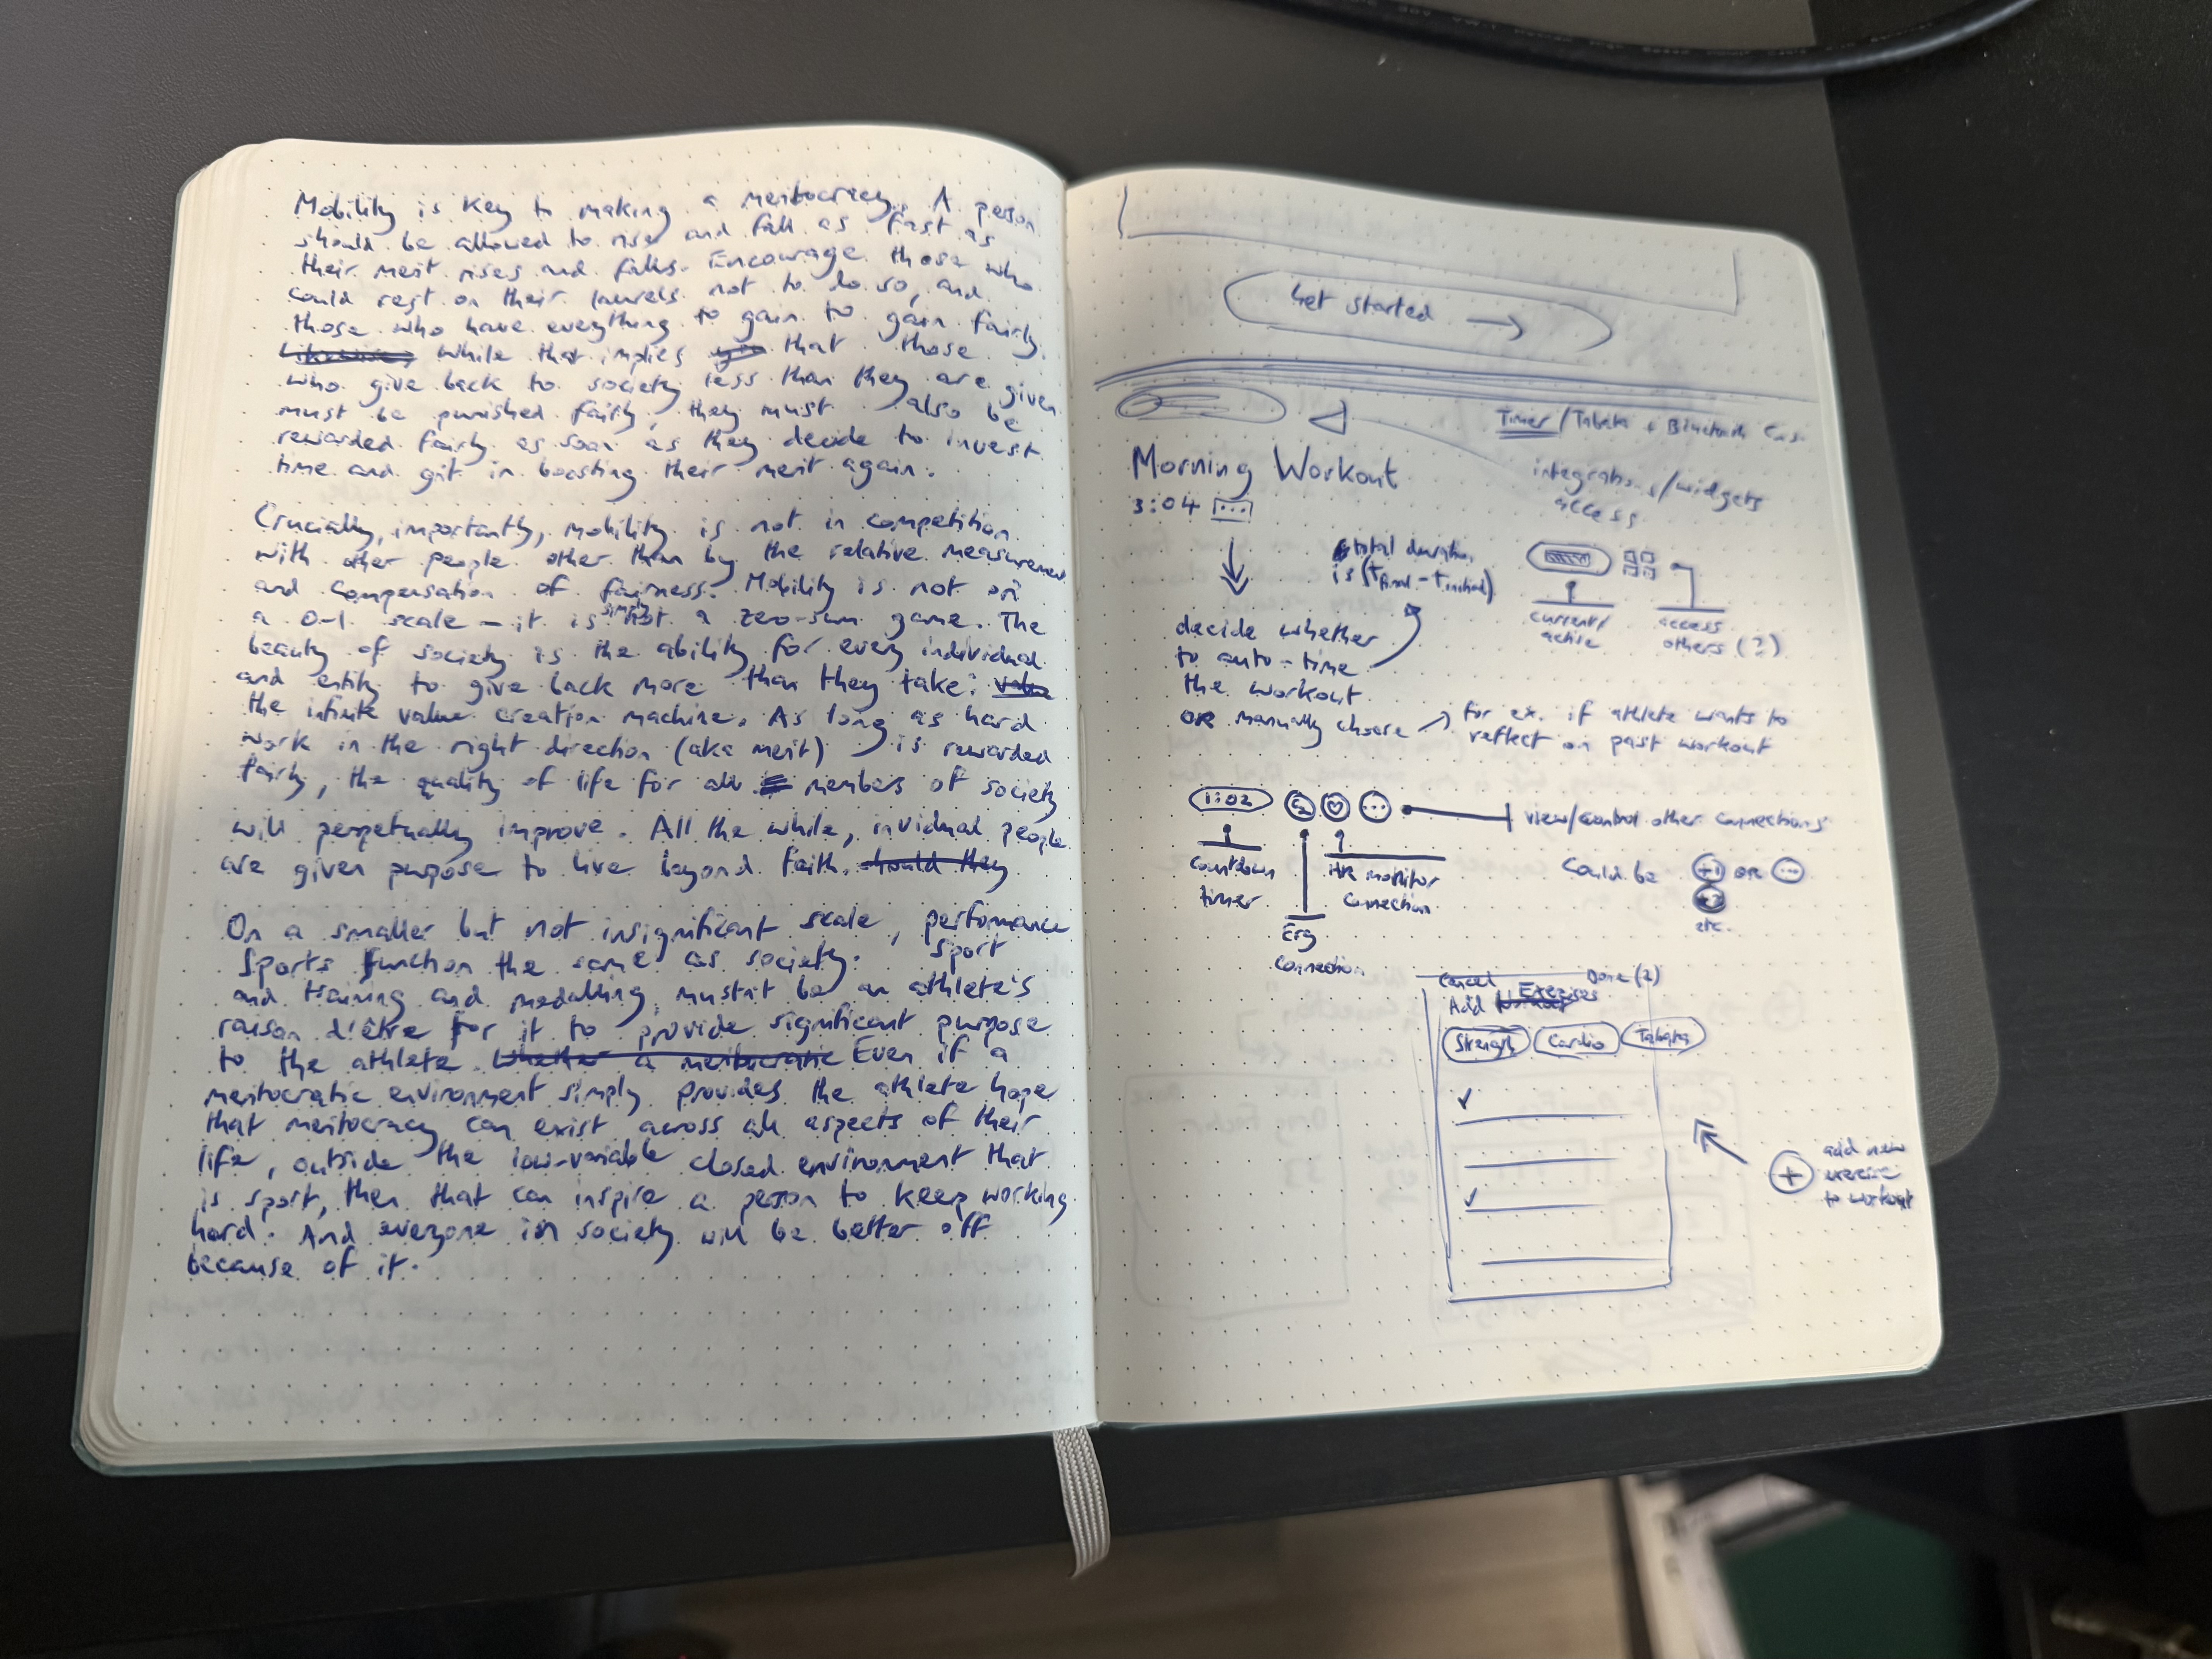 Mobility is key to making a meritocracy. A person
should be allowed to rise and fall as fast as
their merit rises and falls. Encourage those who
could rest on their laurels not to do so, and
those who have everything to gain to gain fairly.
Likewise, while that implies that those
who give back to society less than they are given
must be punished fairly, they must also be
rewarded fairly as soon as they decide to invest
time and grit in boosting their merit again.
Crucially, importantly, mobility is not in competition
with other people other than by the relative measurement
and compensation of fairness. Mobility is not on
a 0-1 scale – it is simply not a zero-sum game. The
beauty of society is the ability for every individual
and entity to give back more than they take: value
the infinite value creation machine. As long as hard
work in the right direction (aka merit) is rewarded
fairly, the quality of life for all members of society
will perpetually improve. All the while, invidual people
are given purpose to live beyond faith. should they
On a smaller but not insignificant scale, perfomance
sports function the same as society. Sport
and training and medalling mustn't be an athlete's
raison d'être for it to provide significant purpose
to the athlete. Whether a meritocratic Even if a
meritocratic environment simply provides the athlete hope
that meritocracy can exist across all aspects of their
life, outside the low-variable closed environment that
is sport, then that can inspire a person to keep working
hard. And everyone in society will be better off
because of it.
Get started →
Timer/Tabata + Bluetooth
Morning Workout
integrations/widgets
access
3:04 ...
total duration
is (tfinal - tinitial)
current/
active
access
others (?)
decide whether
to auto-time
the workout
OR manually choose → for ex. if athlete wants to
reflect on past workout
1:02 ... view/control other connections
Countdown
timer
HR monitor
connection
Erg
connection
Could be +1 OR ...
+2
etc.
Cancel Done (2)
Add Workout Exercises
Strength Cardio Tabata
✓
✓
+ add new
exercise
to workout